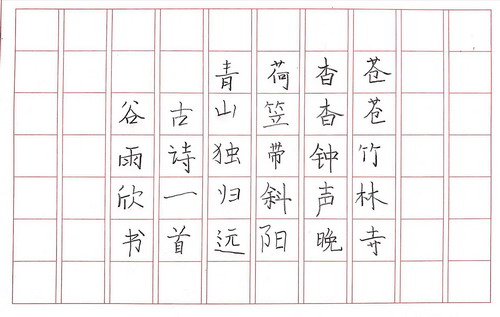 苍苍竹林寺
杳杳钟声晚
荷笠带斜阳
青山独归远
古诗一首
谷雨欣书